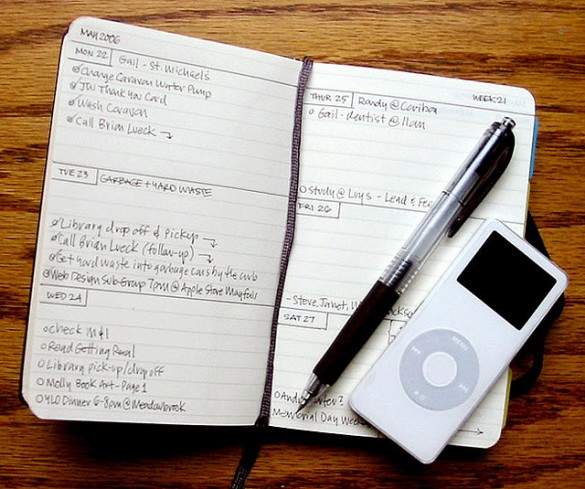 MAY 2006
MON 22 Gail - St. Michael's
Change Caravan Water Pump
JW Thank You Card
Wash Caravan
Call Brian Lueck →
TUE 23 GARBAGE + YARD WASTE
Library drop off & pickup →
Call Brian Lueck (follow-up) →
Get yard waste into garbage cans by the curb
Web Design Sub Group 7pm @ Apple Store Mayfair
WED 24
check M&I
Read Getting Real
Library pick-up/drop off
Molly Book Art - Page 1
YLO Dinner 6-8pm @ Meadowbrook
THUR 25 Randy @ Caribou WEEK 21
Gail - dentist @ 11am
Study @ Loy's - Lead &
FRI 26
- Steve, Janet,
SAT 27
Memorial Day
MENU